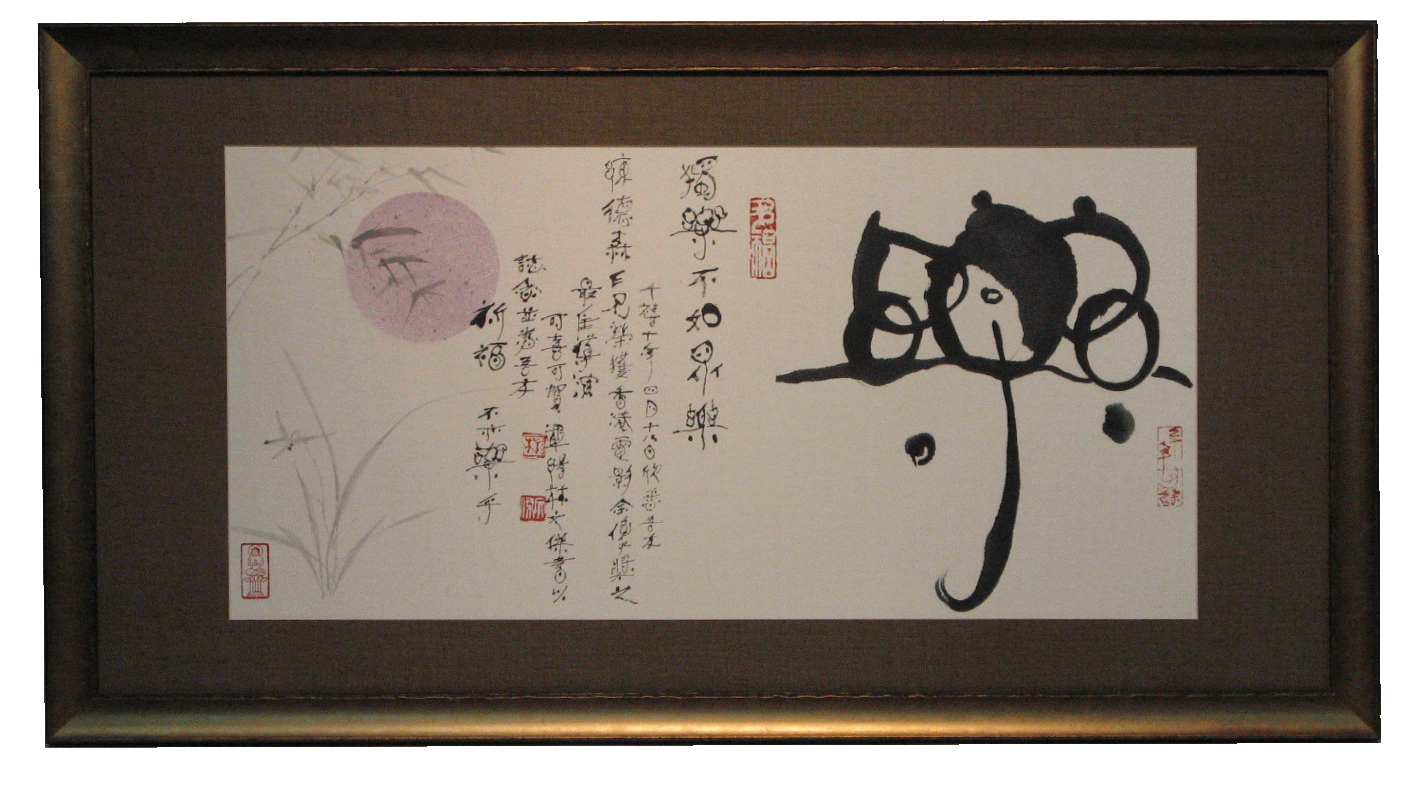 樂
多福
獨樂不如眾樂
十年四月十八日欣悉吾友
陳德森兄榮獲香港電影金像獎之
最佳導演
可喜可賀 林文傑書以
誌念並為吾友
祈福
不亦樂乎